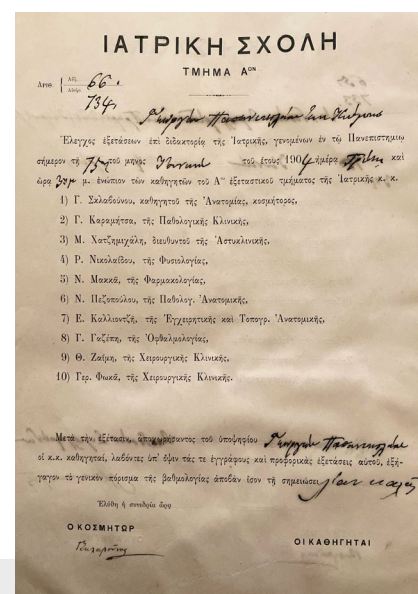 ΙΑΤΡΙΚΗ ΣΧΟΛΗ
ΤΜΗΜΑ Α^ΟΝ
Αριθ.
66.
734
Γεωργίου Παπανικολάου
Ἔλεγχος ἐξετάσεων ἐπὶ διδακτορίᾳ τῆς Ἰατρικῆς, γενομένων ἐν τῷ Πανεπιστημίῳ
σήμερον τῇ 15 τοῦ μηνὸς τοῦ ἔτους 1904 ἡμέρᾳ Τρίτῃ καὶ
ὥρᾳ μ. ἐνώπιον τῶν καθηγητῶν τοῦ Α^ου ἐξεταστικοῦ τμήματος τῆς Ἰατρικῆς κ. κ.
1) Γ. Σκλαβούνου, καθηγητοῦ τῆς Ἀνατομίας, κοσμήτορος,
2) Γ. Καραμήτσα, τῆς Παθολογικῆς Κλινικῆς,
3) Μ. Χατζημιχάλη, διευθυντοῦ τῆς Ἀστυκλινικῆς,
4) Ρ. Νικολαΐδου, τῆς Φυσιολογίας,
5) Ν. Μακκᾶ, τῆς Φαρμακολογίας,
6) Ν. Πεζοπούλου, τῆς Παθολογ. Ἀνατομικῆς,
7) Ε. Καλλιοντζῆ, τῆς Ἐγχειρητικῆς καὶ Τοπογρ. Ἀνατομικῆς,
8) Γ. Γαζέπη, τῆς Ὀφθαλμολογίας,
9) Θ. Ζαΐμη, τῆς Χειρουργικῆς Κλινικῆς,
10) Γερ. Φωκᾶ, τῆς Χειρουργικῆς Κλινικῆς.
Μετὰ τὴν ἐξέτασιν, ἀποχωρήσαντος τοῦ ὑποψηφίου Γεωργίου Παπανικολάου
οἱ κ.κ. καθηγηταί, λαβόντες ὑπ' ὄψιν τάς τε ἐγγράφους καὶ προφορικὰς ἐξετάσεις αὐτοῦ, ἐξή-
γαγον τὸ γενικὸν πόρισμα τῆς βαθμολογίας ἀποβὰν ἴσον τῇ σημειώσει λίαν καλῶς
Ἐλύθη ἡ συνεδρία ὥρᾳ
Ο ΚΟΣΜΗΤΩΡ
ΟΙ ΚΑΘΗΓΗΤΑΙ